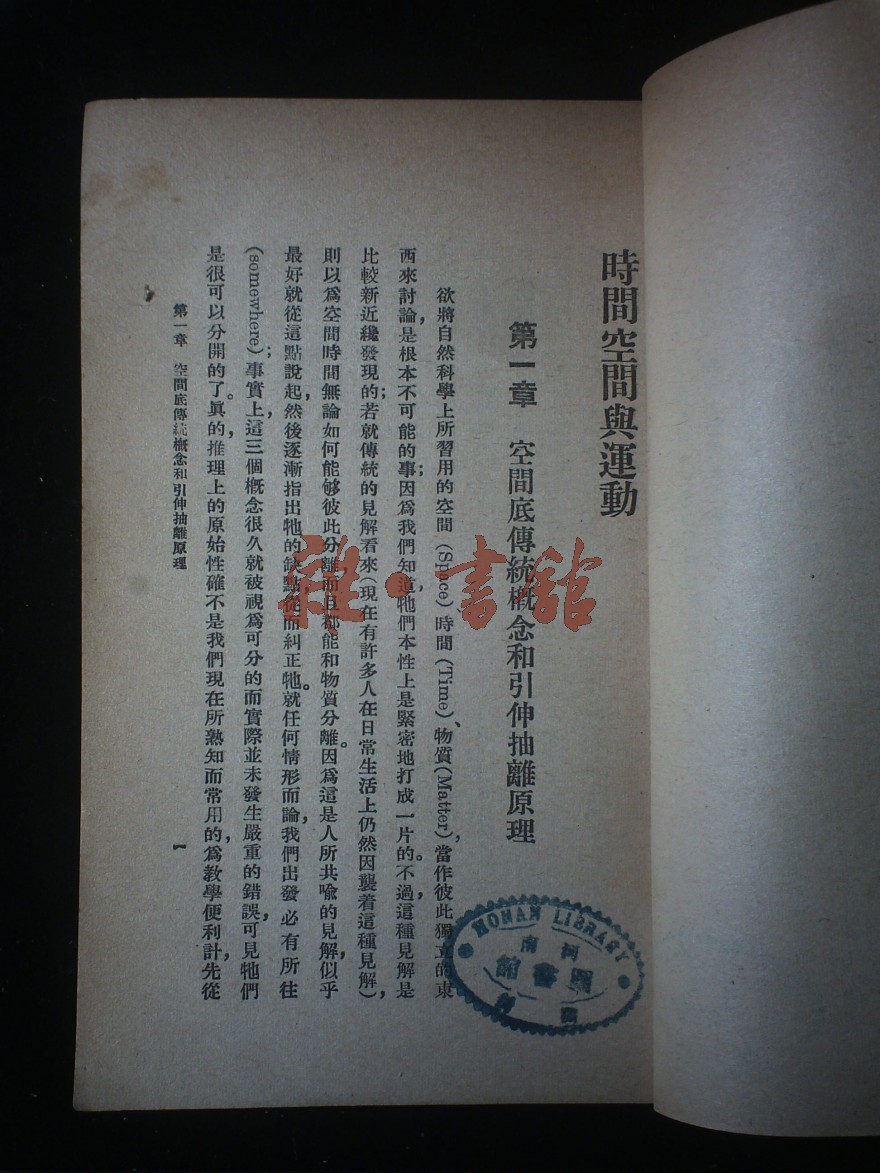 時間空間與運動
第一章 空間底傳統概念和引伸抽離原理
欲將自然科學上所習用的空間(Space)時間(Time)、物質(Matter),當作彼此獨立的東
西來討論,是根本不可能的事;因爲我們知道牠們本性上是緊密地打成一片的。不過這種見解是
比較新近纔發現的;若就傳統的見解看來(現在有許多人在日常生活上仍然因襲着這種見解),
則以爲空間時間無論如何能够彼此分離,而且都能和物質分離。因爲這是人所共喩的見解,似乎
最好就從這點說起,然後逐漸指出牠的缺點,從而糾正牠。就任何情形而論,我們出發必有所往
(somewhere);事實上,這三個概念很久就被視爲可分的,而實際並未發生嚴重的錯誤,可見牠們
是很可以分開的了。眞的,推理上的原始性確不是我們現在所熟知而常用的,爲教學便利計,先從
第一章 空間底傳統概念和引伸抽離原理
一
雜·書館
HONAN LIBRARY
河南
圖書館